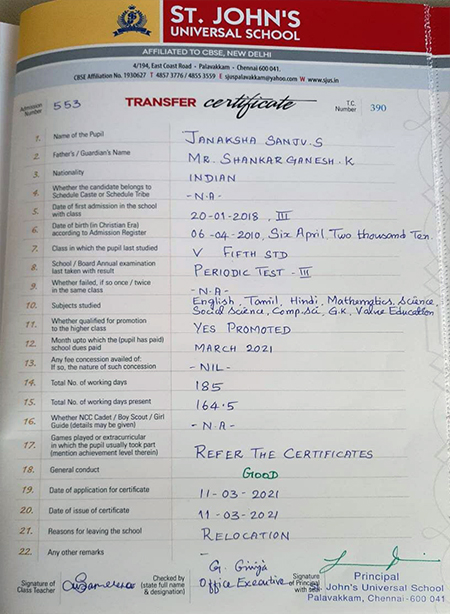 ST. JOHN'S
UNIVERSAL SCHOOL
AFFILIATED TO CBSE, NEW DELHI
4/194, East Coast Road - Palavakkam - Chennai 600 041.
CBSE Affiliation No. 1930627 T 4857 3776 / 4855 3559 E sjuspalavakkam@yahoo.com W www.sjus.in
Admission Number 553 TRANSFER certificate T.C. Number 390
1. Name of the Pupil JANAKSHA SANJU.S
2. Father's / Guardian's Name MR. SHANKAR GANESH.K
3. Nationality INDIAN
4. Whether the candidate belongs to
Schedule Caste or Schedule Tribe -N.A-
5. Date of first admission in the school
with class 20-01-2018, III
6. Date of birth (in Christian Era)
according to Admission Register 06-04-2010, Six April, Two thousand Ten.
7. Class in which the pupil last studied V FIFTH STD
8. School / Board Annual examination
last taken with result PERIODIC TEST - III
9. Whether failed, if so once / twice
in the same class -N.A-
10. Subjects studied English, Tamil, Hindi, Mathematics, Science,
Social Science, Comp.Sci, G.K, Value Education
11. Whether qualified for promotion
to the higher class YES PROMOTED
12. Month upto which the (pupil has paid)
school dues paid MARCH 2021
13. Any fee concession availed of:
If so, the nature of such concession -NIL-
14. Total No. of working days 185
15. Total No. of working days present 164.5
16. Whether NCC Cadet / Boy Scout / Girl
Guide (details may be given) -N.A-
17. Games played or extracurricular
in which the pupil usually took part
(mention achievement level therein) REFER THE CERTIFICATES
18. General conduct GOOD
19. Date of application for certificate 11-03-2021
20. Date of issue of certificate 11-03-2021
21. Reasons for leaving the school RELOCATION
22. Any other remarks -
Signature of
Class Teacher
Checked by
(state full name
& designation)
G. Girija
Office Executive
Signature
of Principal
with seal
Principal
St. John's Universal School
Palavakkam, Chennai - 600 041